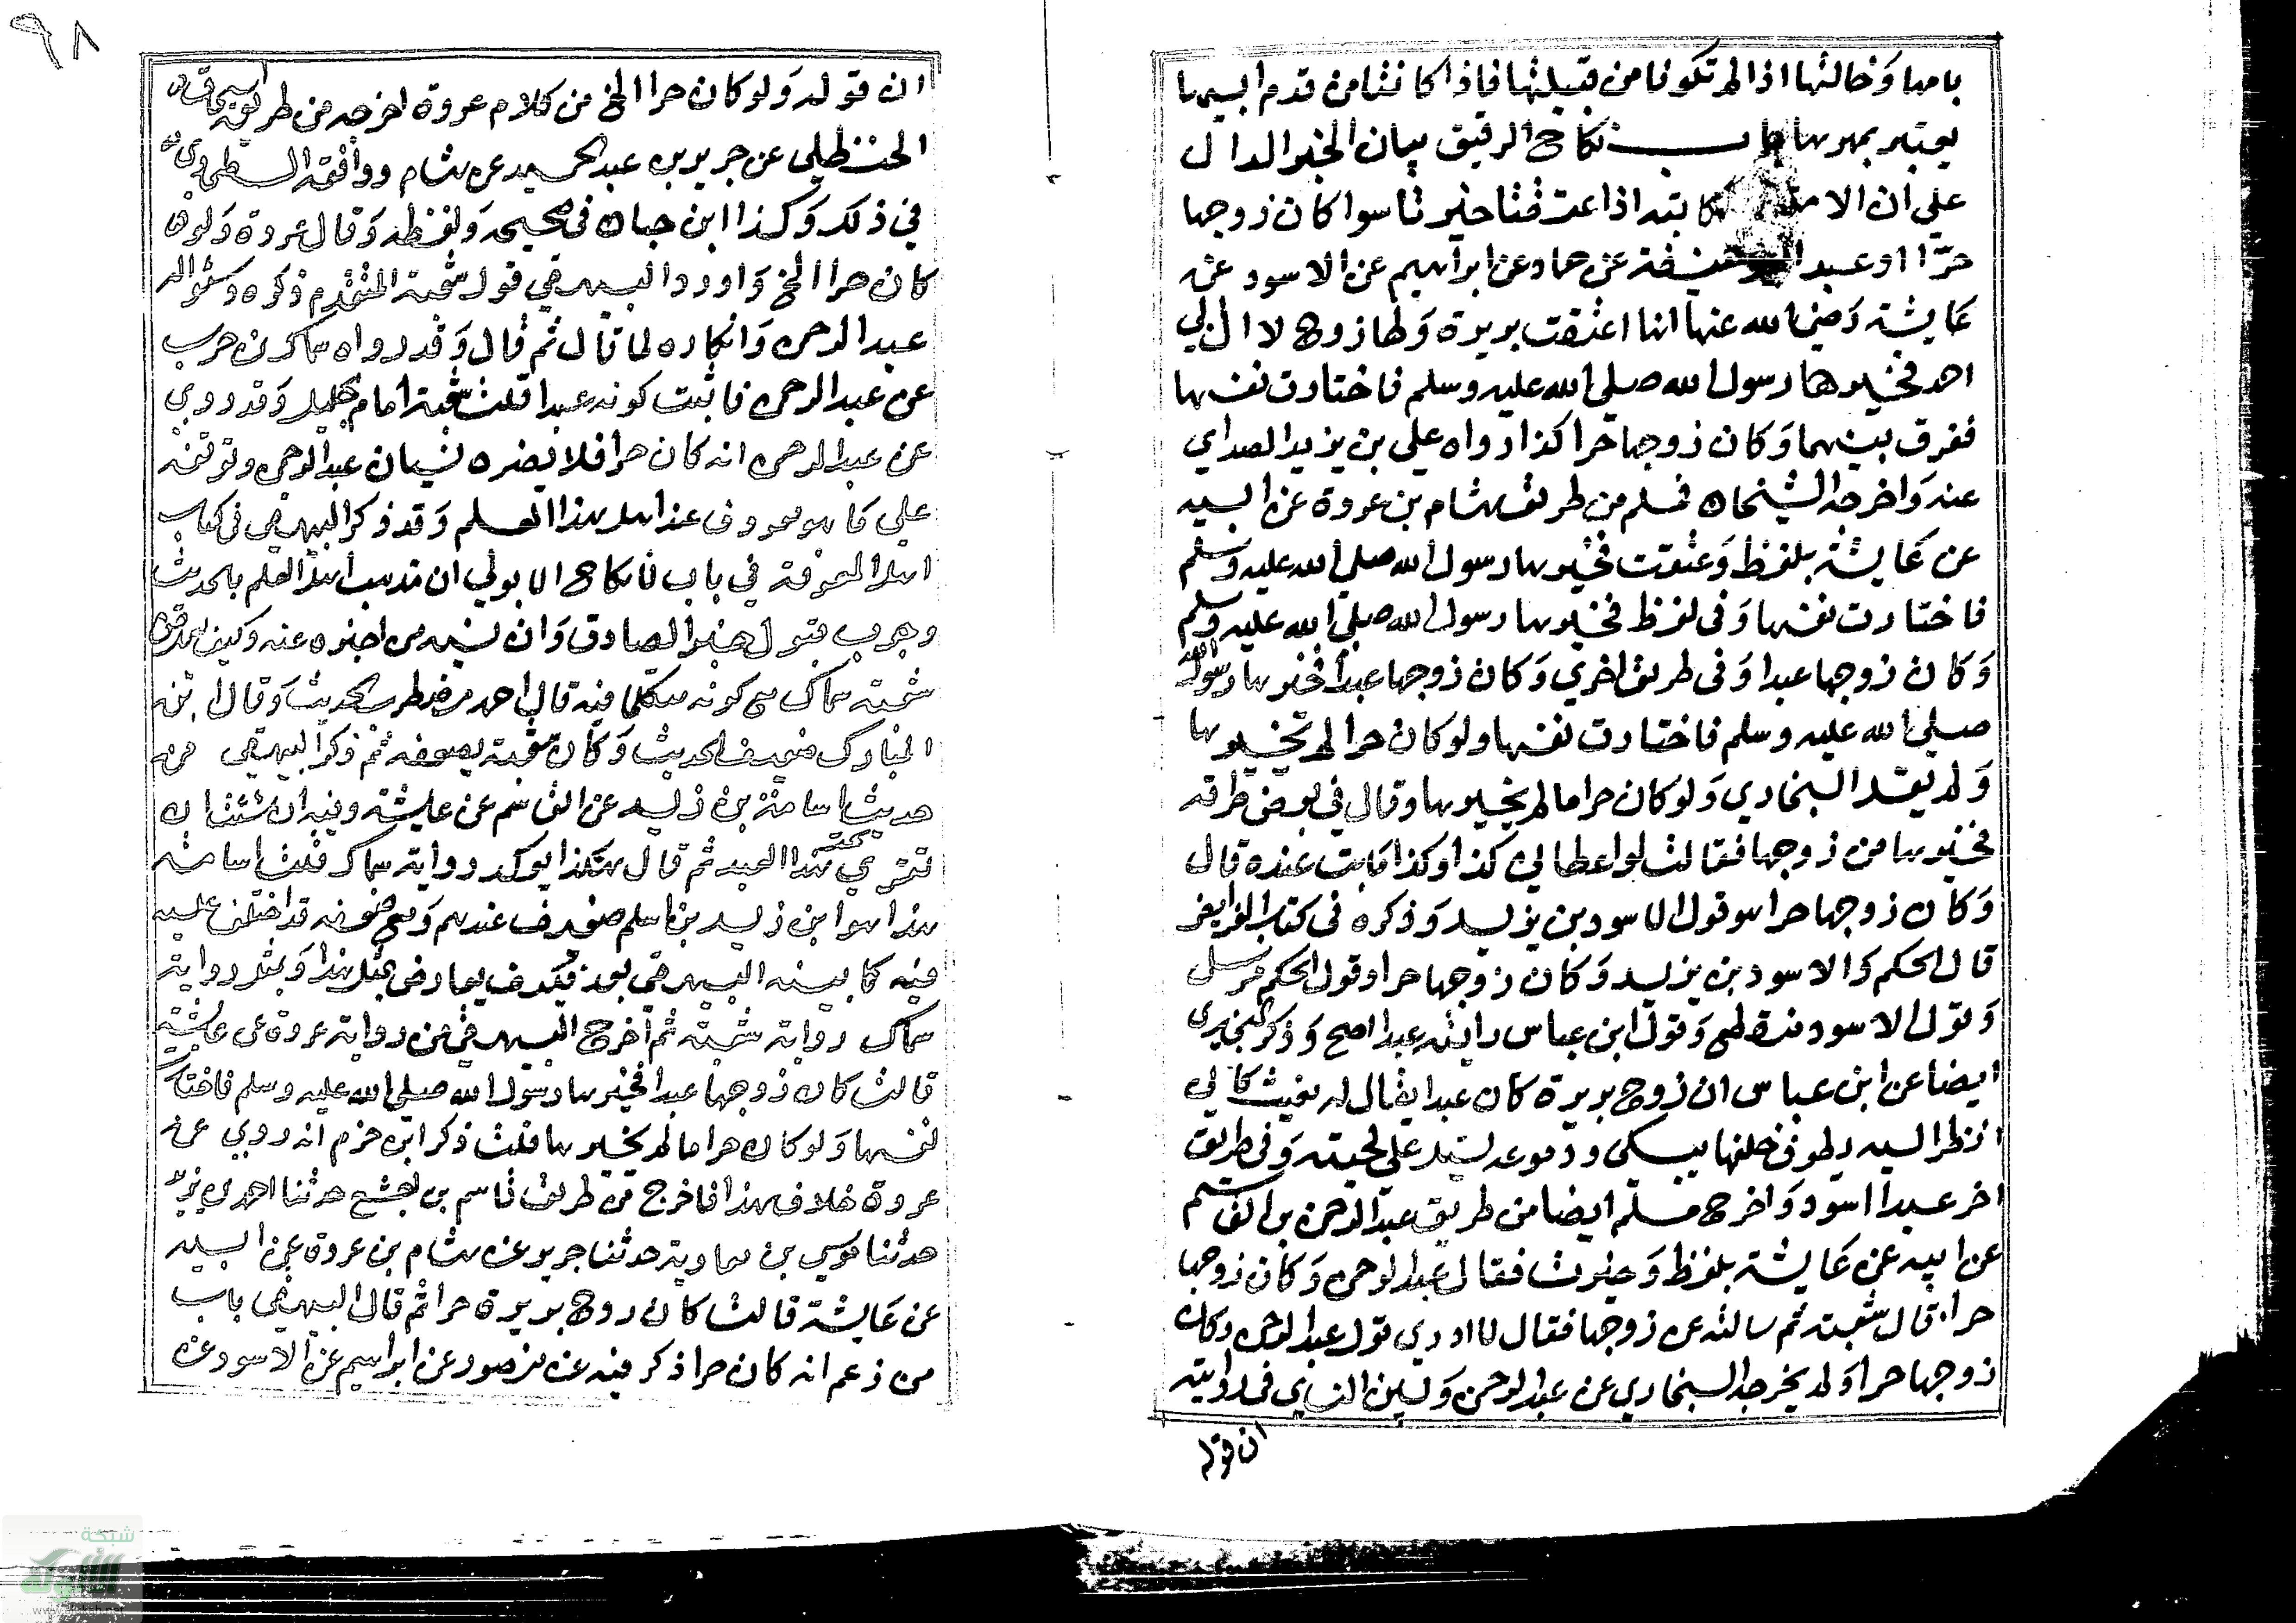 بامها وخالتها اذا لم تكونا من قبيلتها فاذا كانتا من قدم ابيها
يعتبر بمهرها باب نكاح الرقيق بيان الخبر الدال
علي ان الامة كاتبه اذا عتقتا خيرتا سوا كان زوجها
حرّا او عبدا عن حماد عن ابراهيم عن الاسود عن
عايشة رضي الله عنها انها اعتقت بريرة ولها زوج لال ابي
احمد فخيرها رسول الله صلي الله عليه وسلم فاختارت نفسها
ففرق بينهما وكان زوجها حرا كذا رواه علي بن يزيد الصداي
عنه واخرجه الشيخان فمسلم من طريق هشام بن عروة عن ابيه
عن عايشة بلفظ وعتقت فخيرها رسول الله صلي الله عليه وسلم
فاختارت نفسها وفي لفظ فخيرها رسول الله صلي الله عليه وسلم
وكان زوجها عبدا وفي طريق اخري وكان زوجها عبدا فخيرها رسول الله
صلي الله عليه وسلم فاختارت نفسها ولو كان حرا لم يخيرها
ولم يقل البخاري ولو كان حرا ما لم يخيرها وقال في بعض طرقه
فخيرها من زوجها فقالت لو اعطاني كذا وكذا ما بت عنده قال
وكان زوجها حرا هو قول الاسود بن يزيد وذكره في كتاب الفرايض
قال الحكم والاسود بن يزيد وكان زوجها حرا وقول الحكم مرسل
وقول الاسود منقطع وقول ابن عباس رايته عبدا اصح وذكر البخاري
ايضا عن ابن عباس ان زوج بريرة كان عبدا يقال له مغيث كاني
انظر اليه يطوف خلفها يبكي ودموعه تسيل علي لحيته وفي طريق
اخر عبدا اسود واخرج مسلم ايضا من طريق عبد الرحمن بن القسم
عن ابيه عن عايشة بلفظ وخيرت فقال عبد الرحمن وكان زوجها
حرا قال شعبة ثم سالته عن زوجها فقال لا ادري قول عبد الرحمن وكان
زوجها حرا ولم يخرجه البخاري عن عبد الرحمن وبين النساي في روايته
ان قوله
٩٨
ان قوله ولو كان حرا الخ من كلام عروة اخرجه من طريق اسحاق بن
الحنظلي عن جرير بن عبد الحميد عن هشام ووافقه الطحاوي
في ذلك وكذا ابن حبان في صحيحه ولفظه وقال عروة ولو
كان حرا الخ واورد البيهقي قول شعبة المتقدم ذكره وسؤاله
عبد الرحمن وانكاره لما قال ثم قال وقد رواه سماك بن حرب
عن عبد الرحمن فاثبت كونه عبدا قلت شعبة امام جليل وقد روي
عن عبد الرحمن انه كان حرا فلا يضره نسيان عبد الرحمن وتوقفه
علي ما هو معروف عند اهل هذا العلم وقد ذكر البيهقي في كتاب
المعرفة في باب لا نكاح الا بولي ان مذهب اهل العلم بالحديث
وجوب قبول خبر الصادق وان نسيه من اخبره عنه وكيف
شعبة سماك مع كونه متكلما فيه قال احمد مضطرب الحديث وقال ابن
المبارك ضعيف الحديث وكان شعبة يضعفه ثم ذكر البيهقي من
حديث اسامة بن زيد عن القاسم عن عايشة وفيه ان شئت ان
تقري تحت هذا العبد ثم قال هكذا يوكد رواية سماك قلت اسامة
هذا هو ابن زيد بن اسلم ضعيف عندهم ومع ضعفه قد اختلف عليه
فيه كما بينه البيهقي بعد فكيف يعارض بمثل هذا وبمثل رواية
سماك رواية شعبة ثم اخرج البيهقي من رواية عروة عن عايشة
قالت كان زوجها عبدا فخيرها رسول الله صلي الله عليه وسلم فاختارت
نفسها ولو كان حرا ما لم يخيرها قلت ذكر ابن حزم انه روي عن
عروة خلاف هذا فاخرج من طريق قاسم بن اصبغ حدثنا احمد بن يزيد
حدثنا موسي بن معاوية حدثنا جرير عن هشام بن عروة عن ابيه
عن عايشة قالت كان زوج بريرة حرا ثم قال البيهقي باب
من زعم انه كان حرا ذكر فيه عن منصور عن ابراهيم عن الاسود عن
شبكة
الألوكة